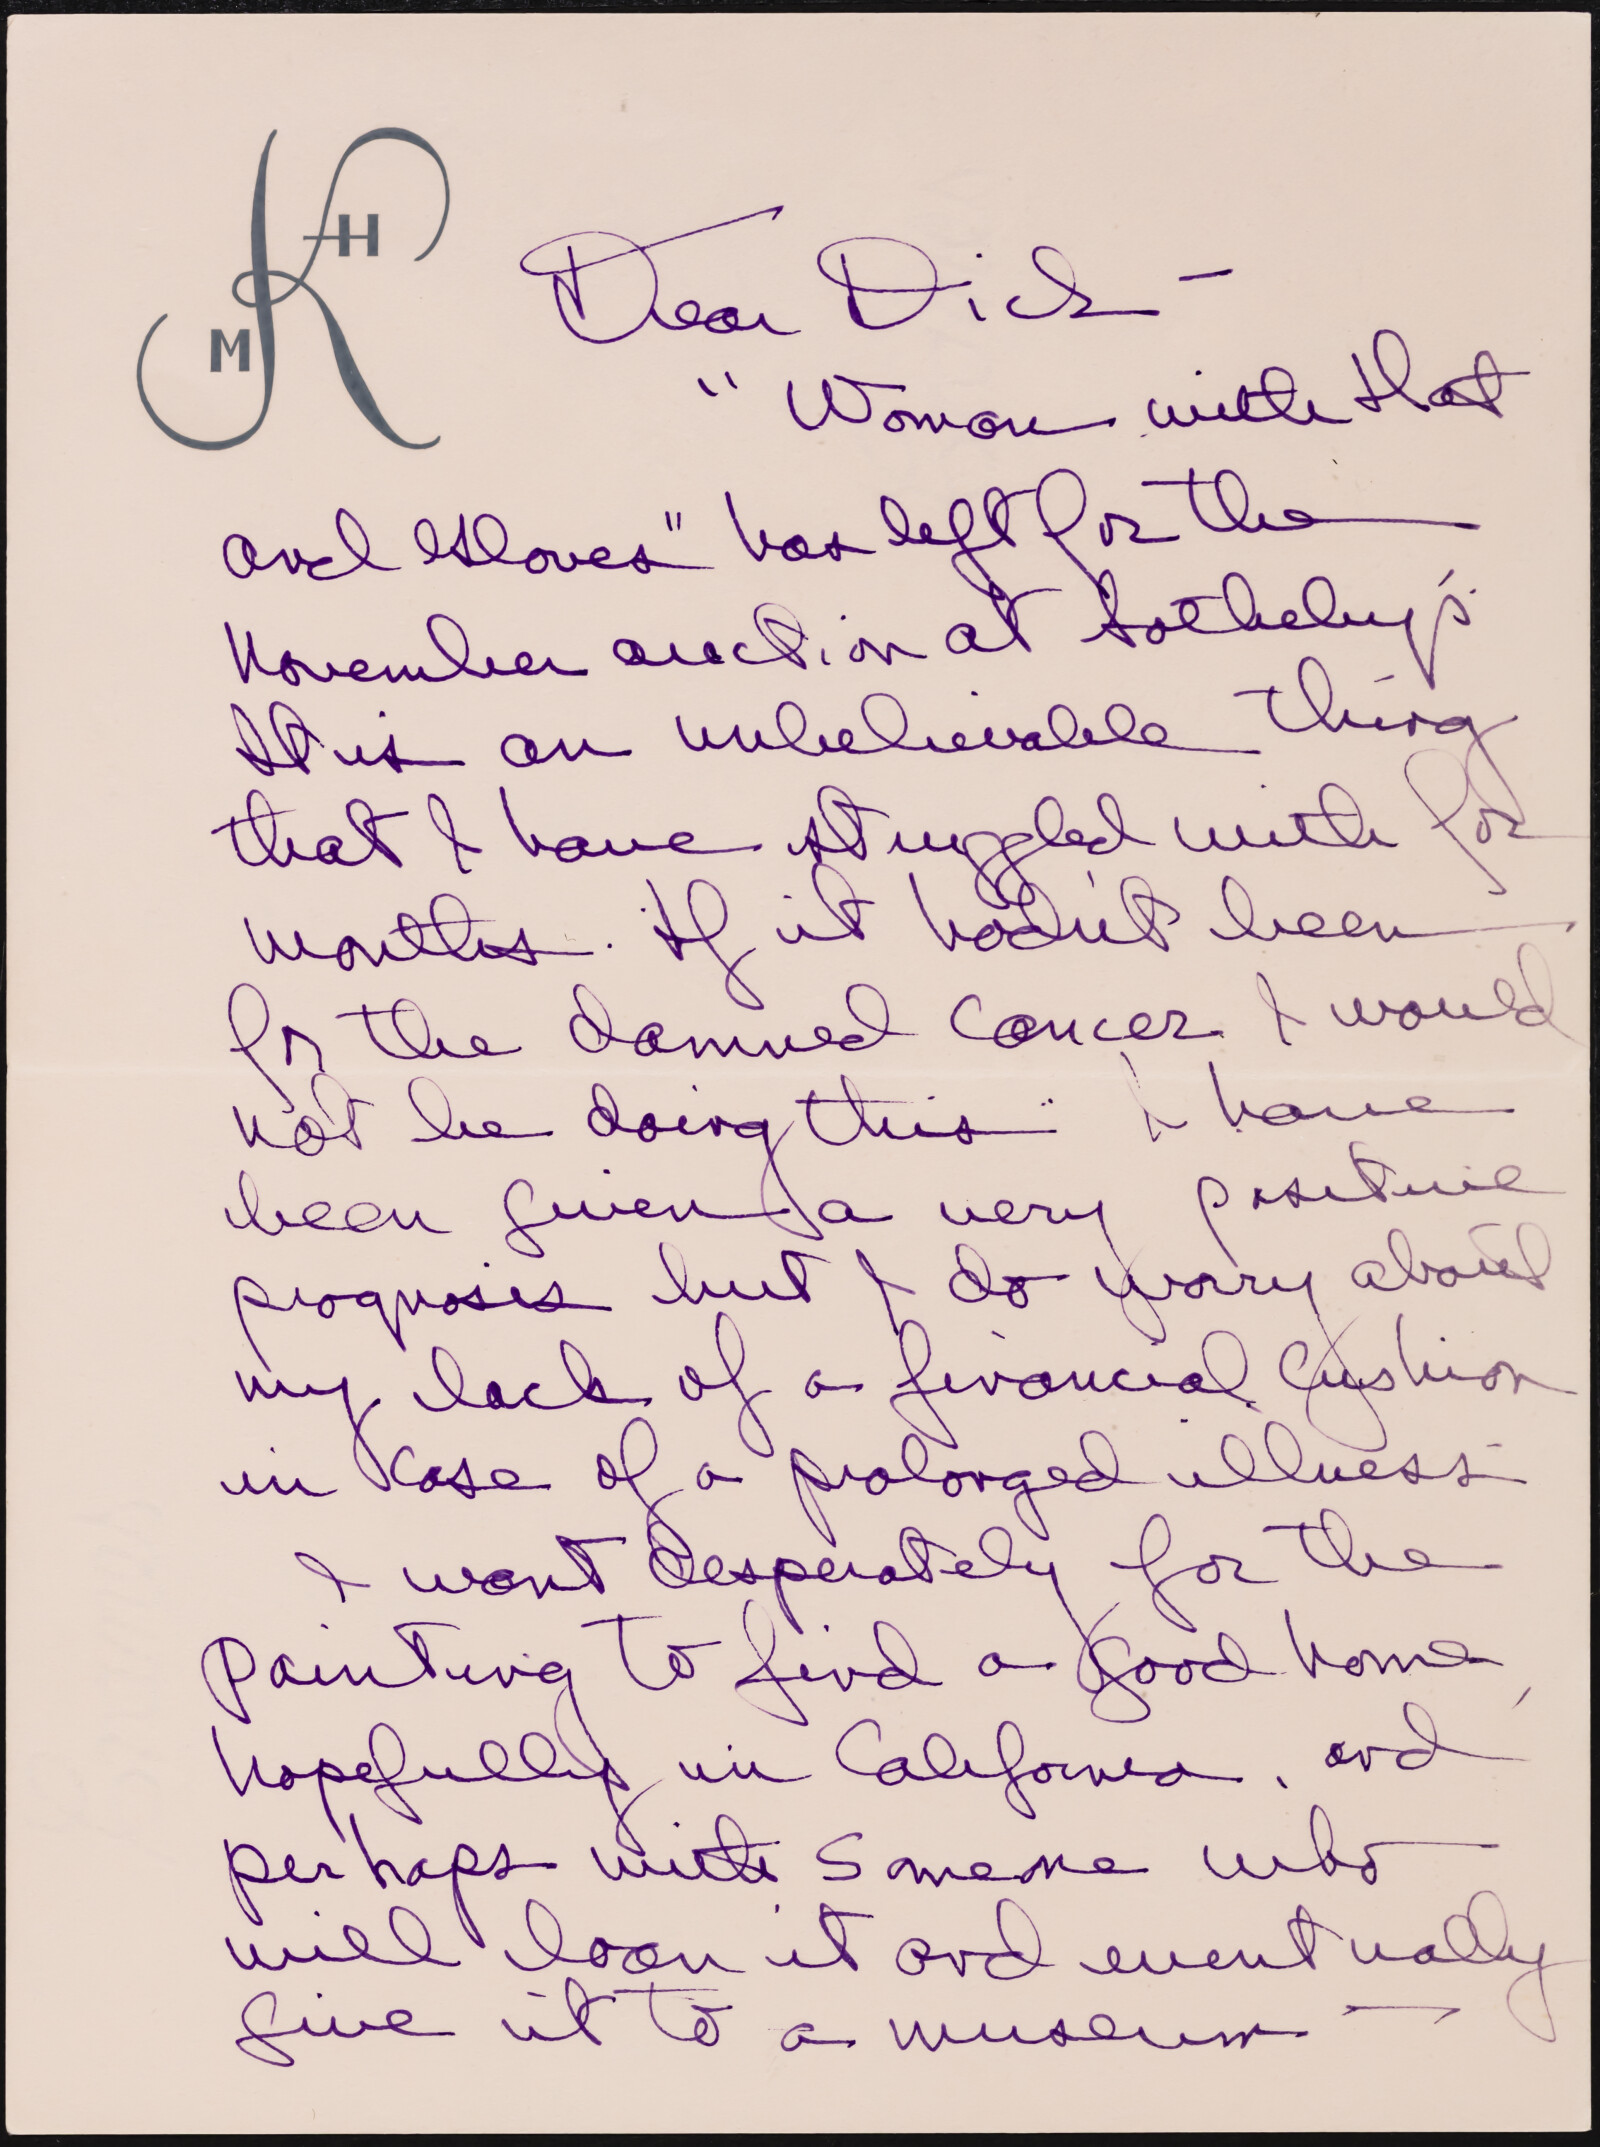 K H M
Dear Dick —
"Woman with Hat
and Gloves" has left for the
November auction at Sotheby's.
It is an unbelievable thing
that I have struggled with for
months. If it hadn't been
for the damned cancer I would
not be doing this. I have
been given a very positive
prognosis but I do worry about
my lack of a financial cushion
in case of a prolonged illness.
I want desperately for the
painting to find a good home,
hopefully in California, and
perhaps with someone who
will loan it and eventually
give it to a museum —